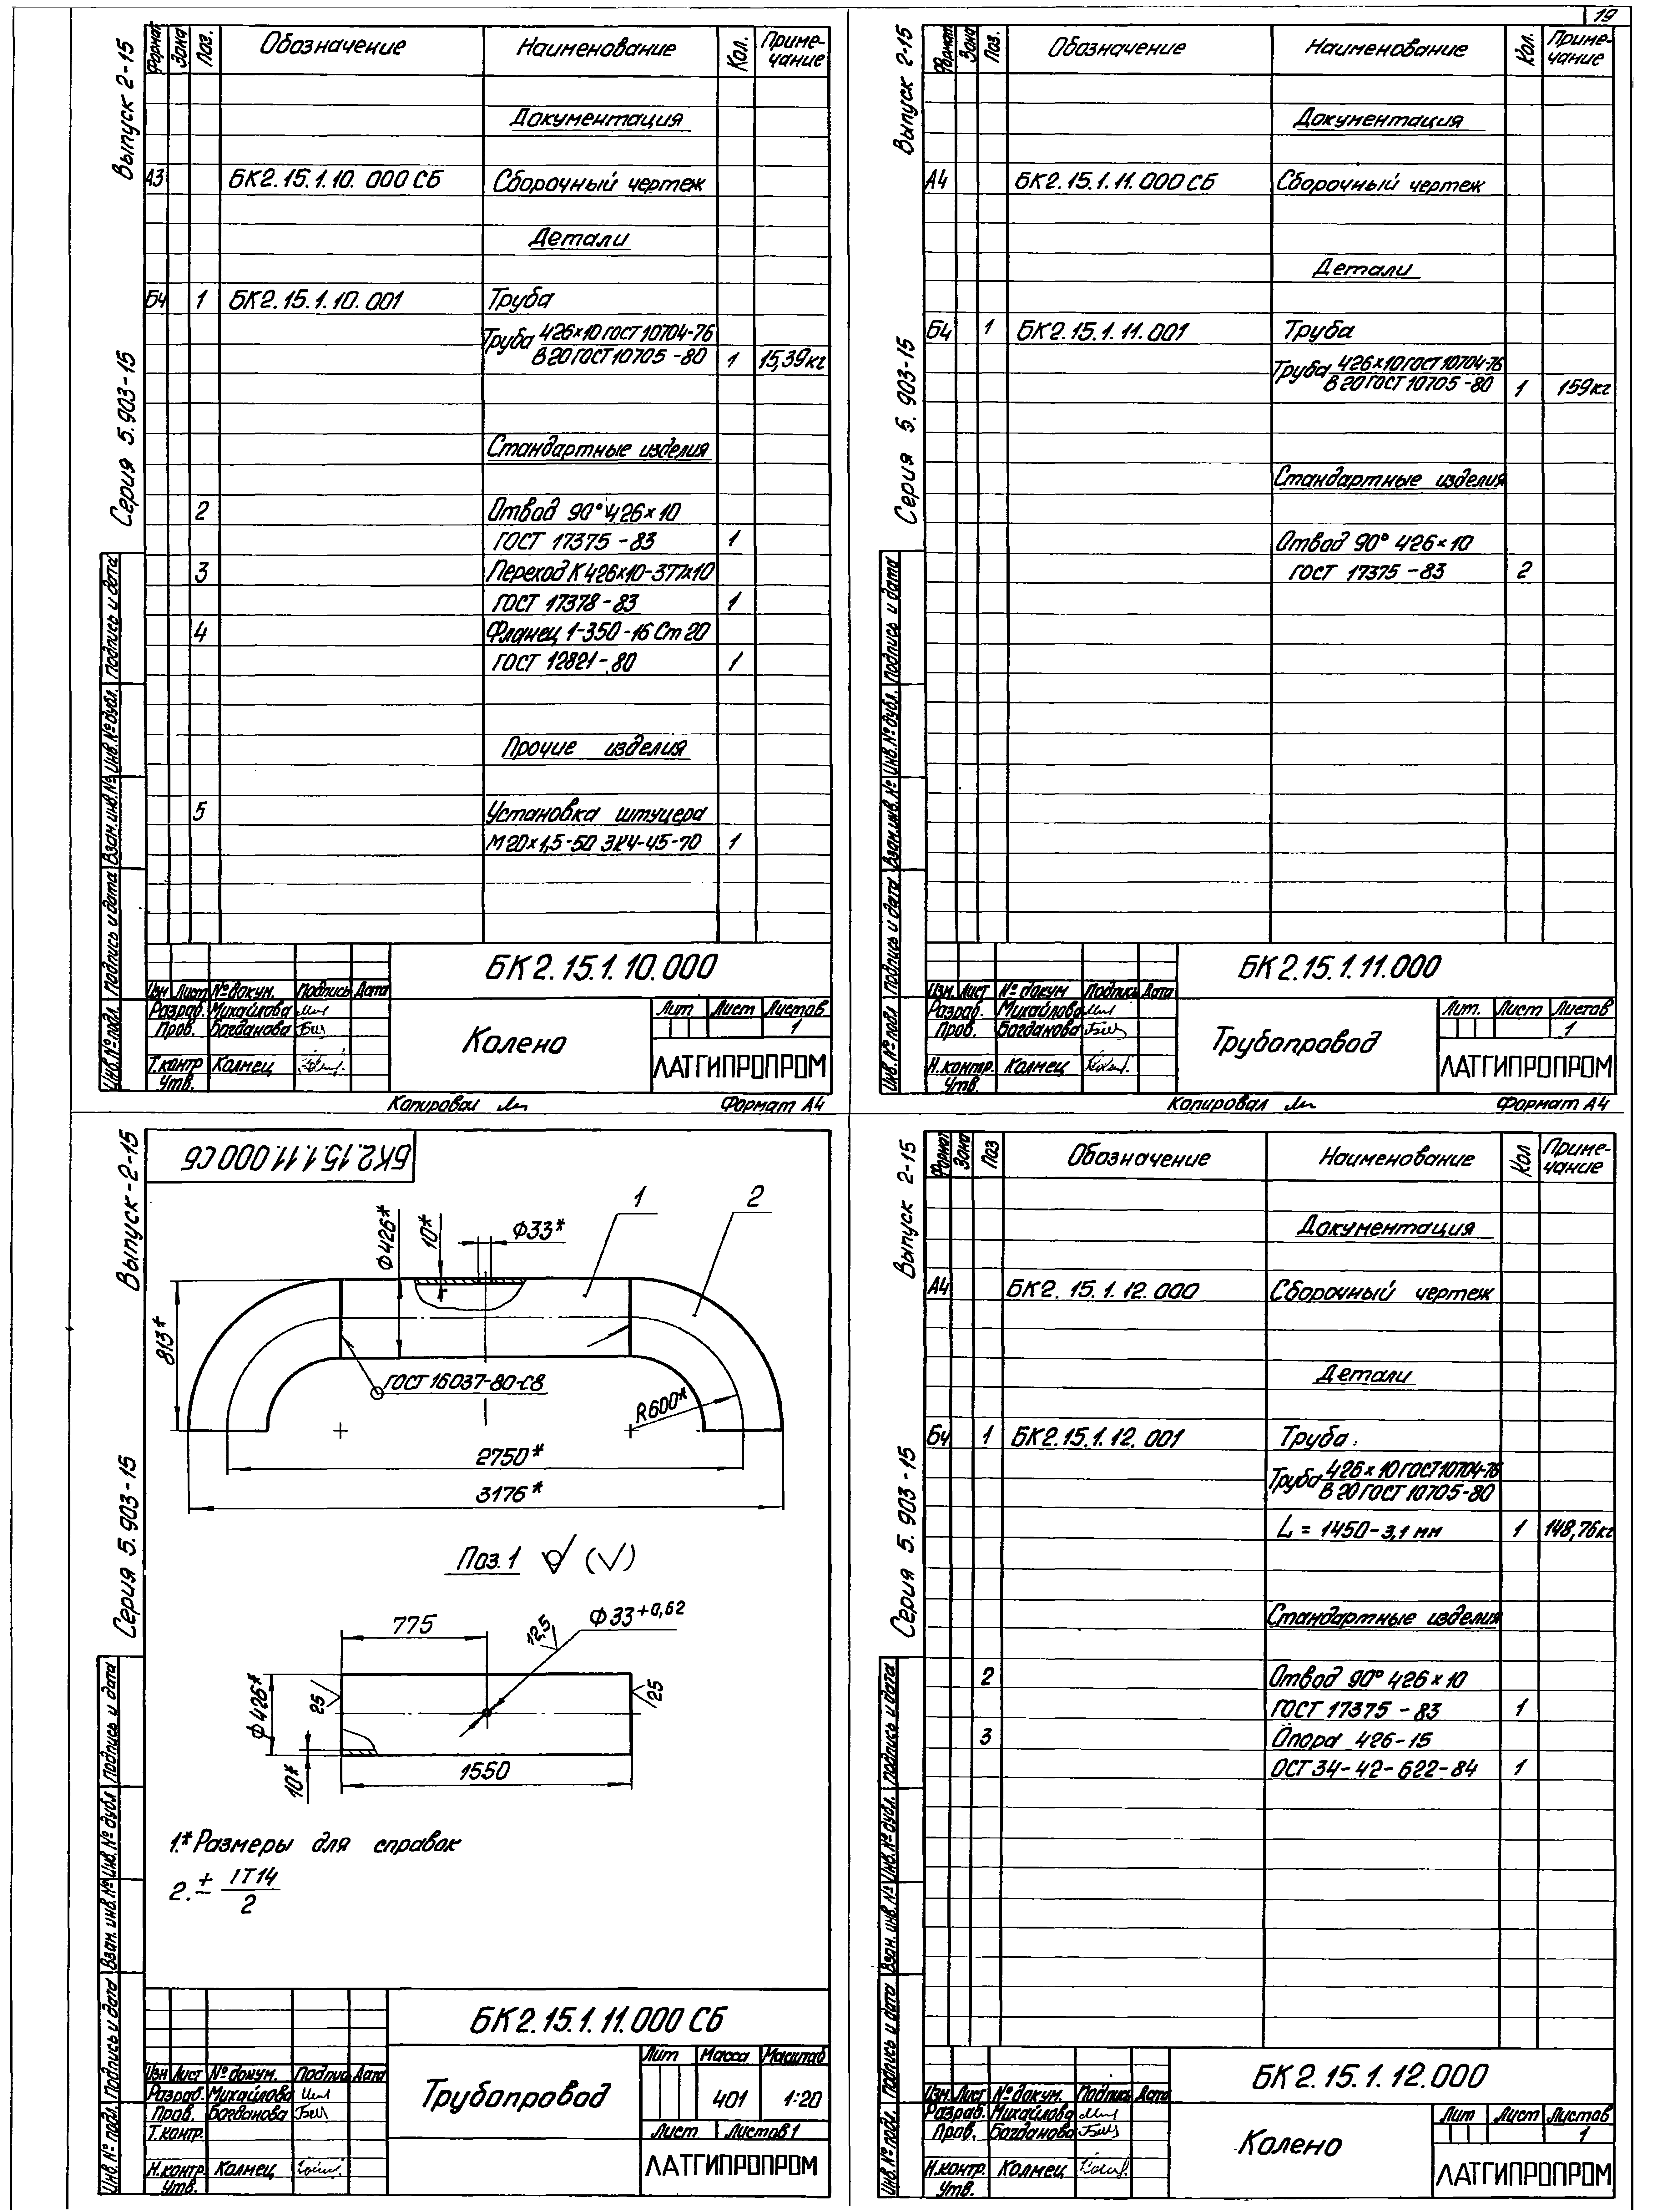 19
Выпуск 2-15
Серия 5.903-15
Формат Зона Поз. Обозначение Наименование Кол. Примечание
Документация
А3 БК2.15.1.10.000 СБ Сборочный чертеж
Детали
Бч 1 БК2.15.1.10.001 Труба
Труба 426×10 ГОСТ 10704-76
В 20 ГОСТ 10705-80 1 15,39кг
Стандартные изделия
2 Отвод 90° 426×10
ГОСТ 17375-83 1
3 Переход К 426×10-377×10
ГОСТ 17378-83 1
4 Фланец 1-350-16 Ст 20
ГОСТ 12821-80 1
Прочие изделия
5 Установка штуцера
М20×1,5-50 ЗК4-45-70 1
Инв.№ подл. Подпись и дата Взам.инв.№ Инв.№ дубл. Подпись и дата
БК2.15.1.10.000
Изм Лист № докум. Подпись Дата
Разраб. Михайлова
Пров. Богданова
Т.контр Колмец
Утв.
Колено
Лит Лист Листов
1
ЛАТГИПРОПРОМ
Копировал
Формат А4
Выпуск 2-15
Серия 5.903-15
Формат Зона Поз. Обозначение Наименование Кол. Примечание
Документация
А4 БК2.15.1.11.000 СБ Сборочный чертеж
Детали
Бч 1 БК2.15.1.11.001 Труба
Труба 426×10 ГОСТ 10704-76
В 20 ГОСТ 10705-80 1 159кг
Стандартные изделия
Отвод 90° 426×10
ГОСТ 17375-83 2
Инв.№ подл Подпись и дата Взам.инв.№ Инв.№ дубл. Подпись и дата
БК2.15.1.11.000
Изм. Лист № докум Подпись Дата
Разраб. Михайлова
Пров. Богданова
Н.контр. Колмец
Утв.
Трубопровод
Лит. Лист Листов
1
ЛАТГИПРОПРОМ
Копировал
Формат А4
Выпуск-2-15
Серия 5.903-15
БК2.15.1.11.000 СБ
1
2
Ф426*
10*
Ф33*
813*
ГОСТ 16037-80-С8
R600*
2750*
3176*
Поз.1 (√)
775
12,5
Ф33+0,62
Ф426*
25
25
10*
1550
1.* Размеры для справок
2. ± IT14
2
Инв.№ подл. Подпись и дата Взам. инв.№ Инв.№ дубл Подпись и дата
БК2.15.1.11.000 СБ
Изм Лист № докум. Подпись Дата
Разраб. Михайлова
Пров. Богданова
Т.контр.
Н.контр. Колмец
Утв.
Трубопровод
Лит Масса Масштаб
401 1:20
Лист Листов 1
ЛАТГИПРОПРОМ
Выпуск 2-15
Серия 5.903-15
Формат Зона Поз Обозначение Наименование Кол Примечание
Документация
А4 БК2.15.1.12.000 Сборочный чертеж
Детали
Бч 1 БК2.15.1.12.001 Труба
Труба 426×10 ГОСТ 10704-76
В 20 ГОСТ 10705-80
L = 1450-3,1 мм 1 148,76кг
Стандартные изделия
2 Отвод 90° 426×10
ГОСТ 17375-83 1
3 Опора 426-15
ОСТ 34-42-622-84 1
Инв.№ подл. Подпись и дата Взам. инв.№ Инв.№ дубл. Подпись и дата
БК2.15.1.12.000
Изм. Лист № докум. Подпись Дата
Разраб. Михайлова
Пров. Богданова
Н.контр. Колмец
Утв.
Колено
Лит Лист Листов
1
ЛАТГИПРОПРОМ